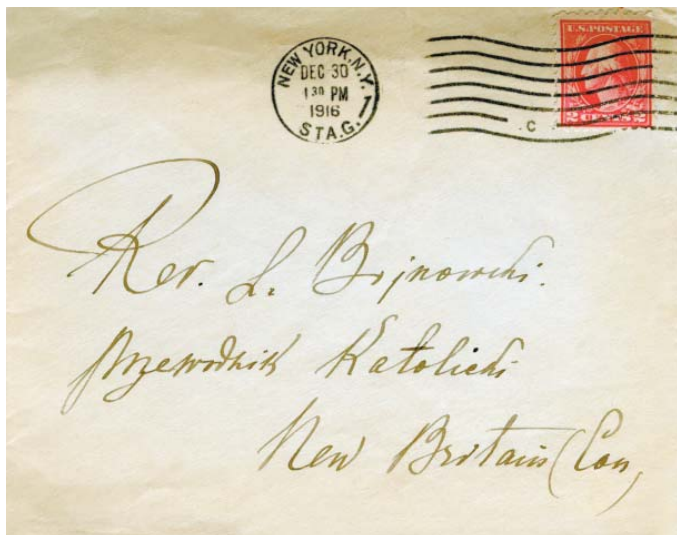 NEW YORK, N.Y. 1
DEC 30
1 30 PM
1916
STA.G.
U.S. POSTAGE
2 CENTS 2
C
Rev. L. Bojnowski.
Przewodnik Katolicki
New Britain (Con)